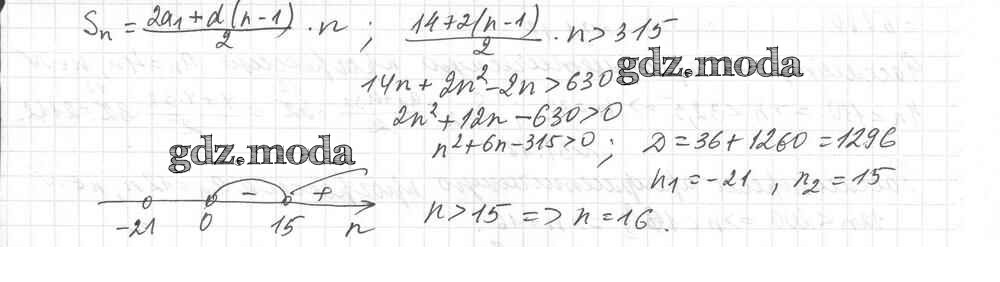 Sₙ = (2a₁ + d(n-1))/2 · n ; (14+2(n-1))/2 · n > 315
14n + 2n² - 2n > 630
gdz.moda
2n² + 12n - 630 > 0
n² + 6n - 315 > 0 ; D = 36 + 1260 = 1296
gdz.moda
n₁ = -21 , n₂ = 15
- +
-21 0 15 n
n > 15 => n = 16.